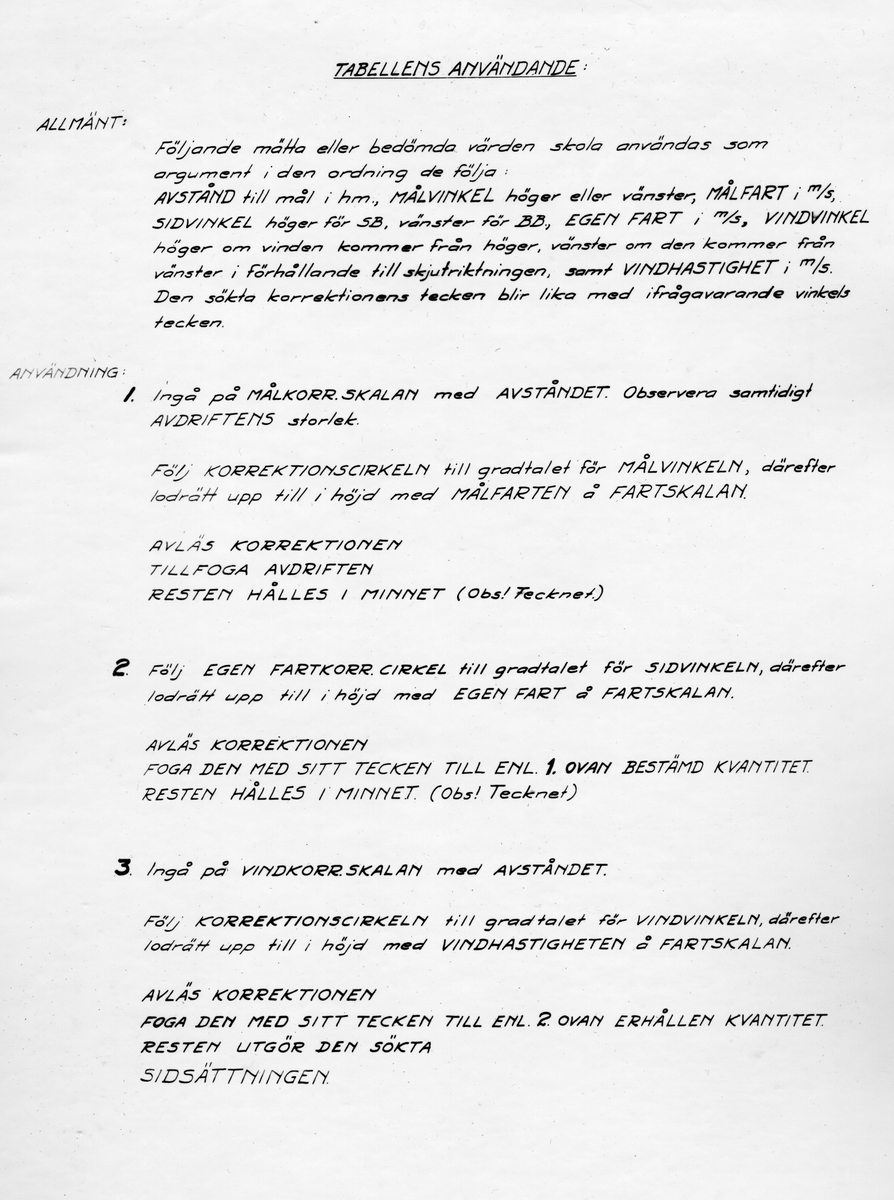 TABELLENS ANVÄNDANDE:
ALLMÄNT:
Följande mätta eller bedömda värden skola användas som
argument i den ordning de följa:
AVSTÅND till mål i hm., MÅLVINKEL höger eller vänster, MÅLFART i m/s,
SIDVINKEL höger för SB, vänster för BB, EGEN FART i m/s, VINDVINKEL
höger om vinden kommer från höger, vänster om den kommer från
vänster i förhållande till skjutriktningen, samt VINDHASTIGHET i m/s.
Den sökta korrektionens tecken blir lika med ifrågavarande vinkels
tecken.
ANVÄNDNING:
1. Ingå på MÅLKORR.SKALAN med AVSTÅNDET. Observera samtidigt
AVDRIFTENS storlek.
Följ KORREKTIONSCIRKELN till gradtalet för MÅLVINKELN, därefter
lodrätt upp till i höjd med MÅLFARTEN å FARTSKALAN.
AVLÄS KORREKTIONEN
TILLFOGA AVDRIFTEN
RESTEN HÅLLES I MINNET (Obs! Tecknet.)
2. Följ EGEN FARTKORR. CIRKEL till gradtalet för SIDVINKELN, därefter
lodrätt upp till i höjd med EGEN FART å FARTSKALAN.
AVLÄS KORREKTIONEN
FOGA DEN MED SITT TECKEN TILL ENL. 1. OVAN BESTÄMD KVANTITET.
RESTEN HÅLLES I MINNET. (Obs! Tecknet)
3. Ingå på VINDKORR.SKALAN med AVSTÅNDET.
Följ KORREKTIONSCIRKELN till gradtalet för VINDVINKELN, därefter
lodrätt upp till i höjd med VINDHASTIGHETEN å FARTSKALAN.
AVLÄS KORREKTIONEN
FOGA DEN MED SITT TECKEN TILL ENL. 2. OVAN ERHÅLLEN KVANTITET.
RESTEN UTGÖR DEN SÖKTA
SIDSÄTTNINGEN.